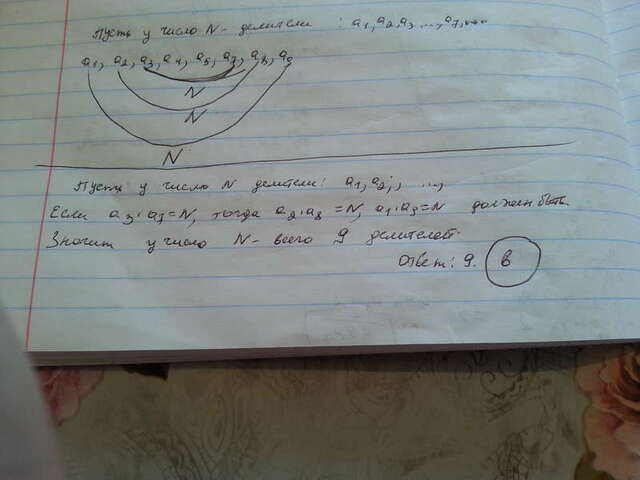 Пусть у число N- делители : a1, a2, a3 ..., a7, ...
a1, a2, a3, a4, a5, a7, a8, a9
N
N
N
Пусть у число N делители: a1, a2, ...,
Если a3 · a7 = N, тогда a2 · a8 = N, a1 · a9 = N должен быть.
Значит у число N- всего 9 делителей.
Ответ: 9. B